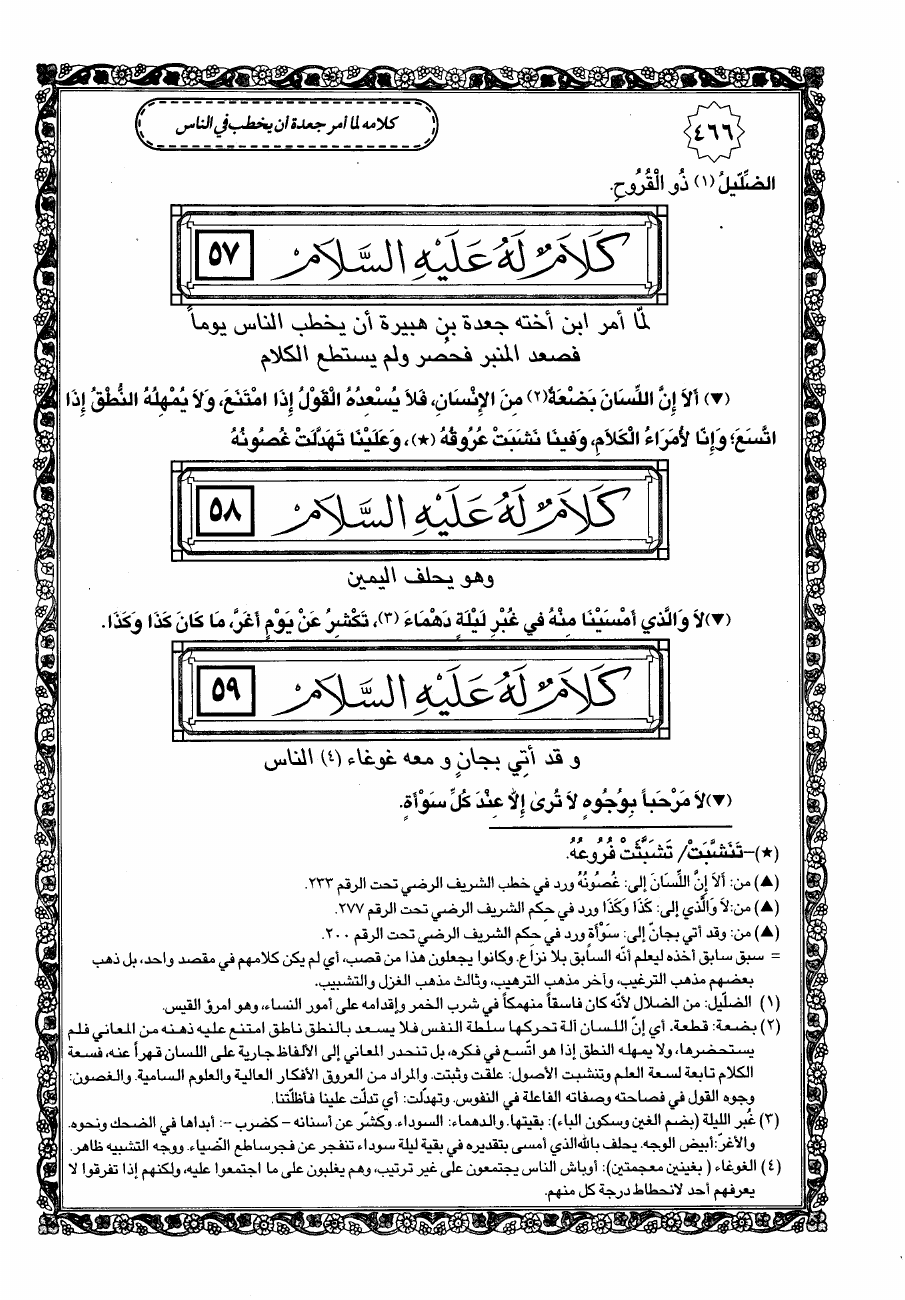 ٤٦٦
كلامه لما أمر جعدة أن يخطب في الناس
الضِّلّيلُ (١) ذُو الْقُرُوحِ.
كَلَامٌ لَهُ عَلَيْهِ السَّلَامْ ٥٧
لمّا أمر ابن أخته جعدة بن هبيرة أن يخطب الناس يوماً
فصعد المنبر فحُصر ولم يستطع الكلام
(▼) أَلاَ إِنَّ اللِّسَانَ بَضْعَةٌ(٢) مِنَ الإِنْسَانِ، فَلاَ يُسْعِدُهُ الْقَوْلُ إِذَا امْتَنَعَ، وَلاَ يُمْهِلُهُ النُّطْقُ إِذَا
اتَّسَعَ؛ وَإِنّا لأُمَرَاءُ الْكَلاَمِ، وَفينَا نَشَبَتْ عُرُوقُهُ (★)، وَعَلَيْنَا تَهَدَّلَتْ غُصُونُهُ
كَلَامٌ لَهُ عَلَيْهِ السَّلَامْ ٥٨
وهو يحلف اليمين
(▼)لاَ وَالَّذي أَمْسَيْنَا مِنْهُ في غُبْرِ لَيْلَةٍ دَهْمَاءَ (٣)، تَكْشِرُ عَنْ يَوْمٍ أَغَرَّ، مَا كَانَ كَذَا وَكَذَا.
كَلَامٌ لَهُ عَلَيْهِ السَّلَامْ ٥٩
و قد أُتِي بجانٍ و معه غوغاء (٤) الناس
(▼)لاَ مَرْحَباً بِوُجُوهٍ لاَ تُرىٰ إِلاّ عِنْدَ كُلِّ سَوْأَةٍ.
(★)-تَنَشَّبَتْ/ تَشَبَّثَتْ فُرُوعُهُ.
(▲) من: أَلاَ إِنَّ اللِّسَانَ إلى: غُصُونُهُ ورد في خطب الشريف الرضي تحت الرقم ٢٣٣.
(▲) من:لاَ وَالَّذي إلى: كَذَا وَكَذَا ورد في حِكم الشريف الرضي تحت الرقم ٢٧٧.
(▲) من: وقد أتي بجانّ إلى: سَوْأَة ورد في حكم الشريف الرضي تحت الرقم ٢٠٠.
= سبق سابق أخذه ليعلم أنّه السابق بلا نزاع. وكانوا يجعلون هذا من قصب، أي لم يكن كلامهم في مقصد واحد، بل ذهب
بعضهم مذهب الترغيب، وآخر مذهب الترهيب، وثالث مذهب الغزل والتشبيب.
(١) الضلّيل: من الضلال لأنّه كان فاسقاً منهمكاً في شرب الخمر وإقدامه على أمور النساء، وهو امرؤ القيس.
(٢) بضعة: قطعة. أي إنّ اللسان آلة تحركها سلطة النفس فلا يسعد بالنطق ناطق امتنع عليه ذهنه من المعاني فلم
يستحضرها، ولا يمهله النطق إذا هو اتّسع في فكره، بل تنحدر المعاني إلى الألفاظ جارية على اللسان قهراً عنه، فسعة
الكلام تابعة لسعة العلم وتنشبت الأصول: علقت وثبتت. والمراد من العروق الأفكار العالية والعلوم السامية. والغصون:
وجوه القول في فصاحته وصفاته الفاعلة في النفوس. وتهدّلت: أي تدلّت علينا فأظلّتنا.
(٣) غُبر الليلة (بضم الغين وسكون الباء): بقيتها. والدهماء: السوداء. وكشّر عن أسنانه – كضرب –: أبداها في الضحك ونحوه.
والأغرّ:أبيض الوجه. يحلف باللهالذي أمسى بتقديره في بقية ليلة سوداء تنفجر عن فجرساطع الضياء. ووجه التشبيه ظاهر.
(٤) الغوغاء ( بغينين معجمتين): أوباش الناس يجتمعون على غير ترتيب، وهم يغلبون على ما اجتمعوا عليه، ولكنهم إذا تفرقوا لا
يعرفهم أحد لانحطاط درجة كل منهم.